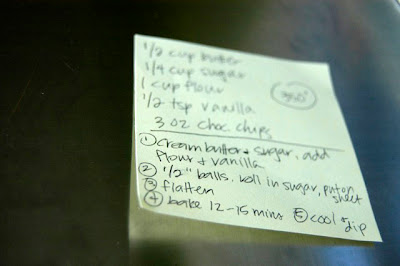 1/2 cup butter
1/4 cup sugar
1 cup flour
350°
1/2 tsp vanilla
3 oz choc chips
① cream butter + sugar, add
flour + vanilla
② 1/2" balls, roll in sugar, put on
sheet
③ flatten
④ bake 12-15 mins ⑤ cool + dip